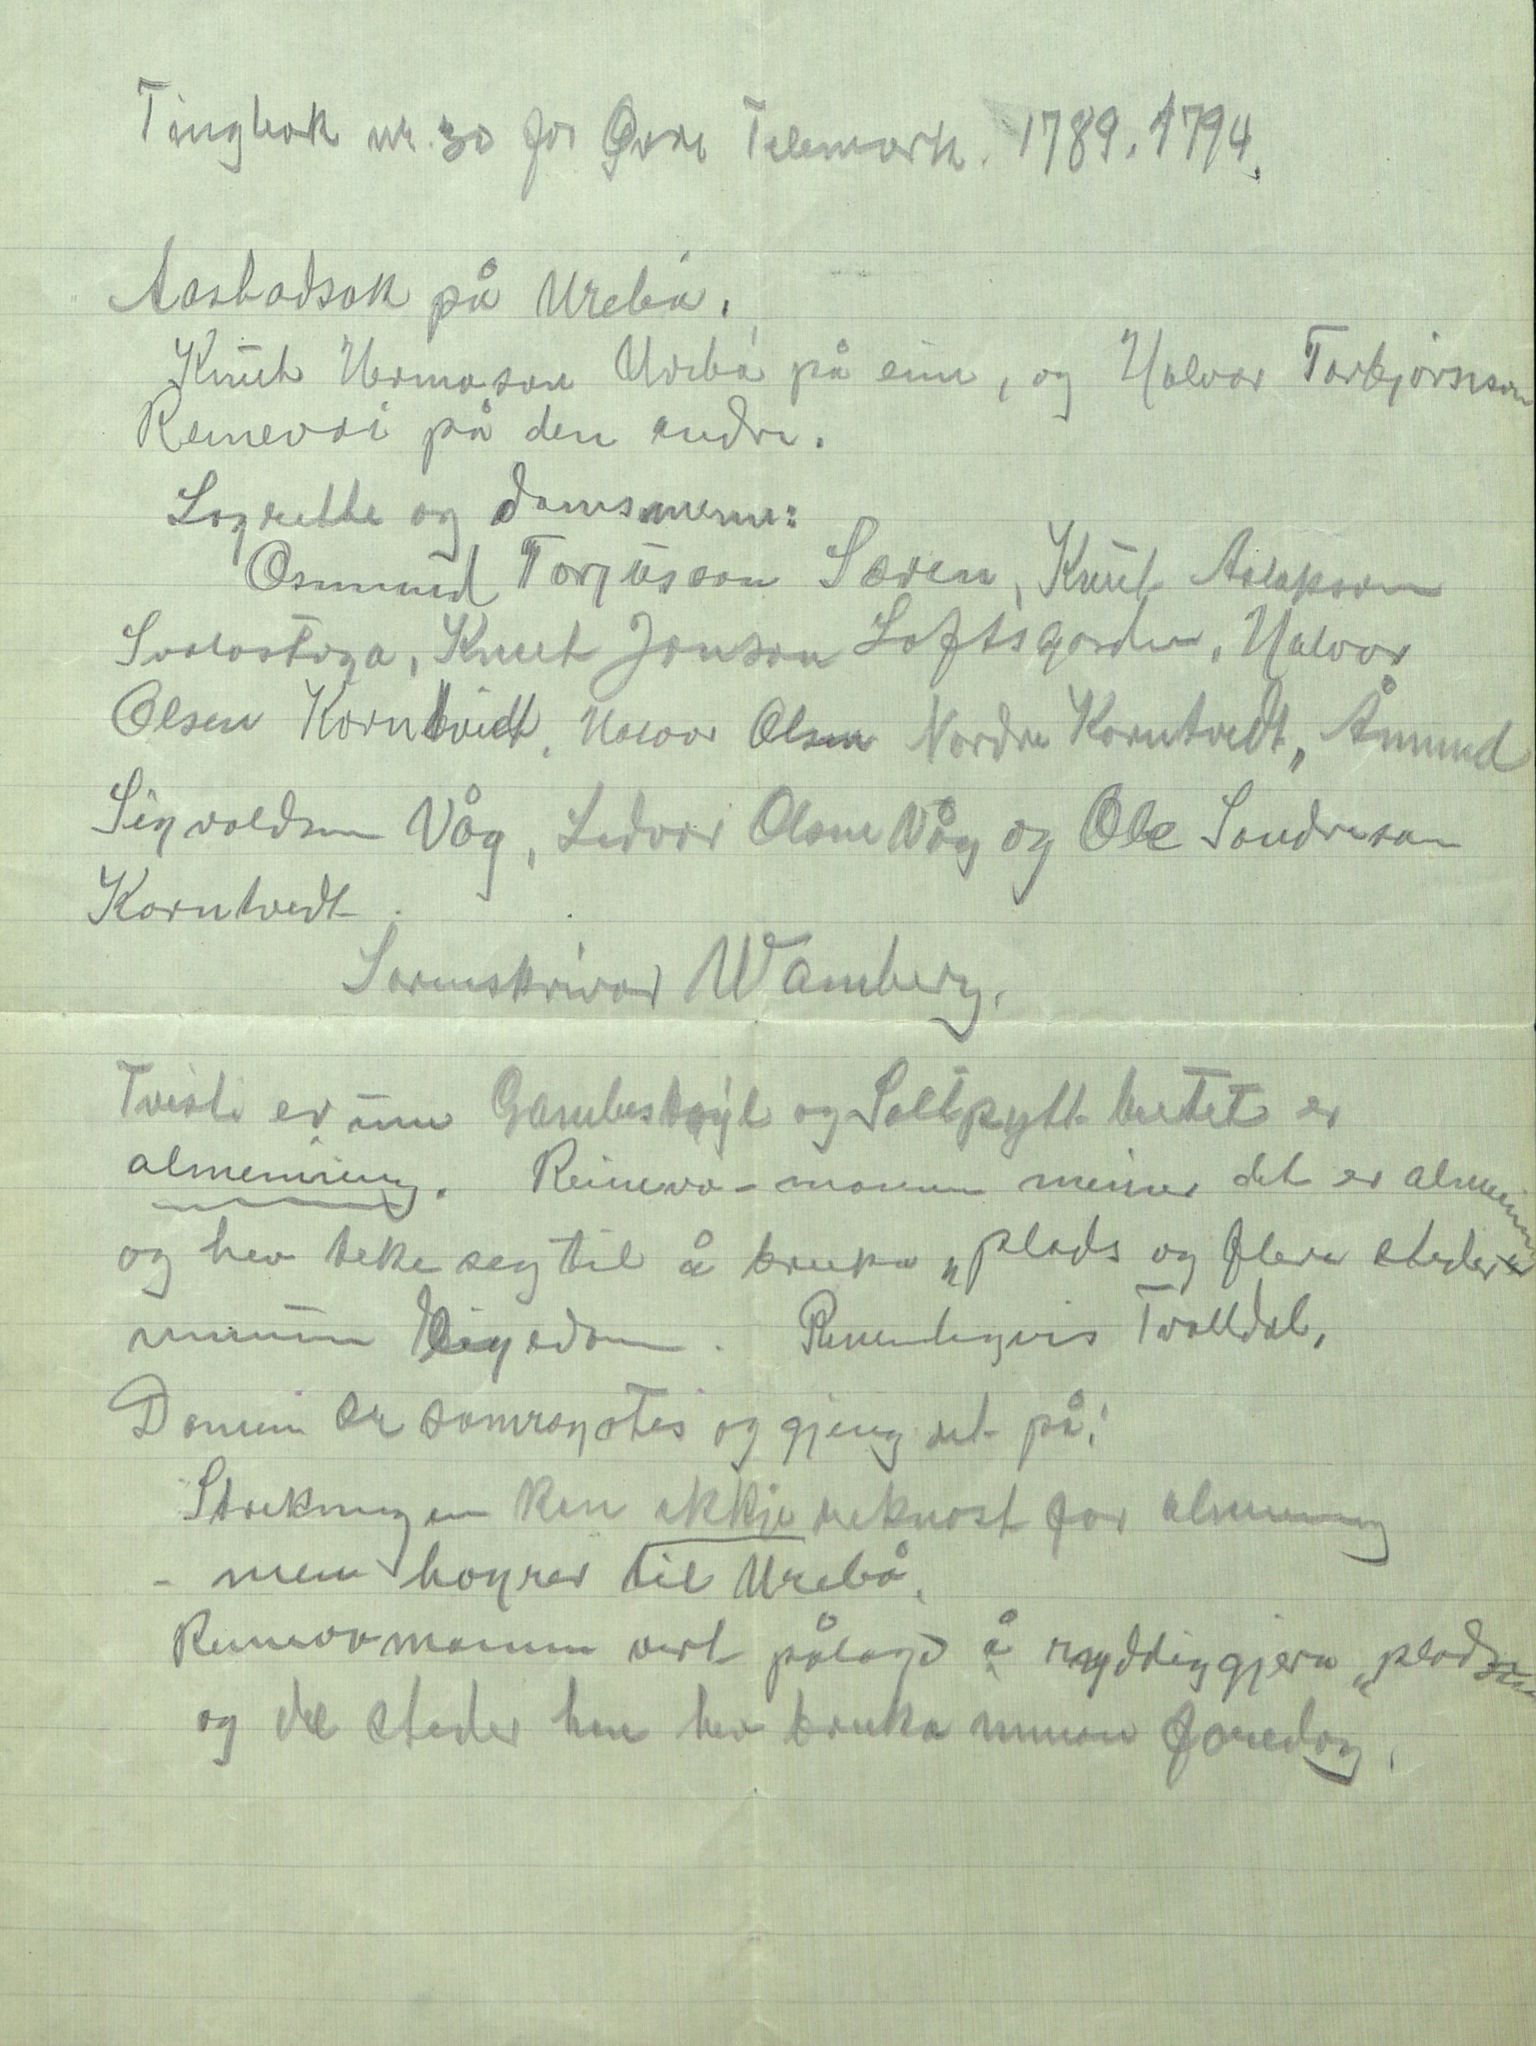 Tingbok nr. 30 for Øvre Telemark. 1789.1794.
Aastadsak på Urebø.
Knut Hermoson Urebø på eine, og Halvor Torbjørnson
Reinevoi på den andre.
Lagrette og domsmenn:
Osmund Torgusson Særen, Knut Aslakson
Svalastoga, Knut Jonson Loftsgarden, Halvor
Olsen Korntvedt, Halvor Olsen Nordre Korntvedt, Åmund
Sigvaldson Våg, Ledvor Olsen Våg og Ole Sondreson
Korntvedt.
Sorenskrivar Wamberg.
Tviste er um og Saltpytt heitet er
almenning. Reinevo-mannen meiner det er almenning
og hev teke seg til å bruka „plads og flere steder
minium Eigedom. Trolldal.
Domen er samrøystes og gjeng ut på:
Strekningen kan ikkje reknast for almenning
- men høyrer til Urebø.
Reinevomannen vert pålagd å ryddiggjera „pladsen
og dei steder han hev bruka innan faredag.